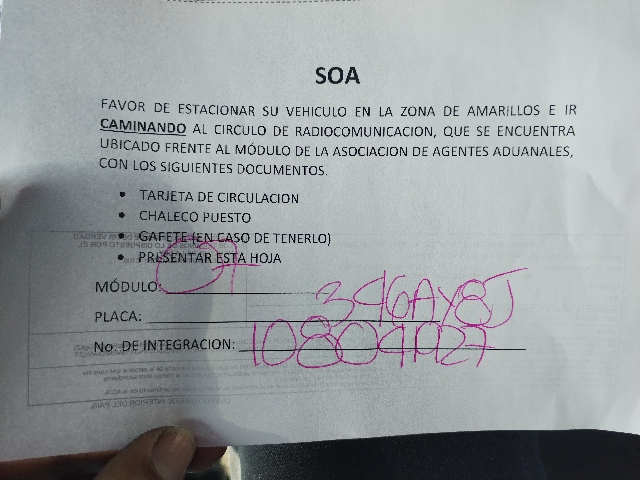 SOA
FAVOR DE ESTACIONAR SU VEHICULO EN LA ZONA DE AMARILLOS E IR
CAMINANDO AL CIRCULO DE RADIOCOMUNICACION, QUE SE ENCUENTRA
UBICADO FRENTE AL MÓDULO DE LA ASOCIACION DE AGENTES ADUANALES,
CON LOS SIGUIENTES DOCUMENTOS.
• TARJETA DE CIRCULACION
• CHALECO PUESTO
• GAFETE (EN CASO DE TENERLO)
• PRESENTAR ESTA HOJA
MÓDULO: 07
PLACA: 396AY8J
No. DE INTEGRACION: